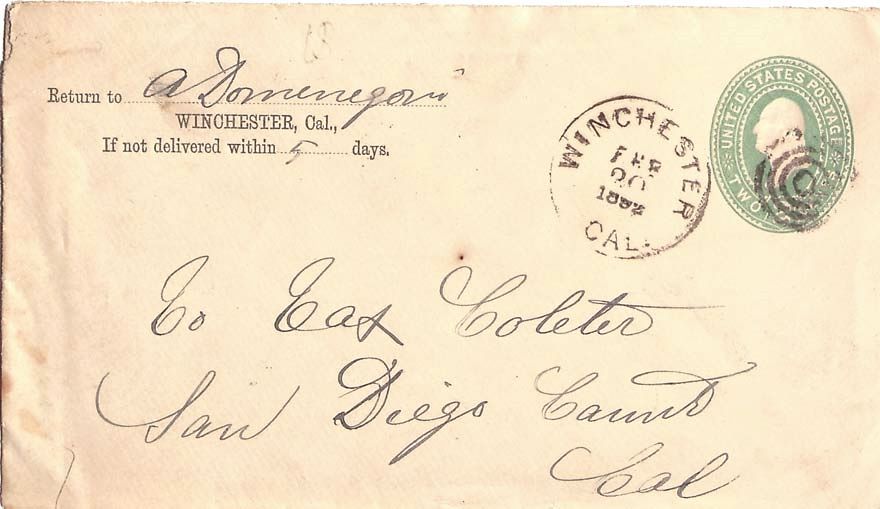 Return to A Domenegoni
WINCHESTER, Cal.,
If not delivered within 5 days.
WINCHESTER
FEB
20
CAL.
UNITED STATES POSTAGE
TWO
To Eax Coleter
San Diego Caunt
Cal